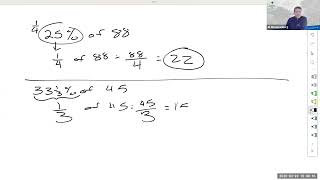 1/4 25% of 88
1/4 of 88 = 88/4 = 22
33 1/3 % of 45
1/3 of 45 = 45/3 = 15